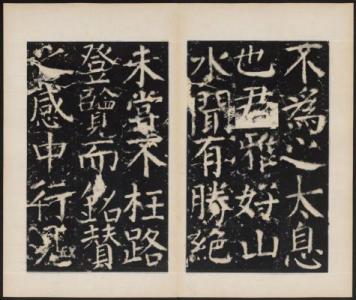 不為之太息
也君雅好山
水聞有勝絕
未嘗不枉路
登覽而銘贊
之感中行見